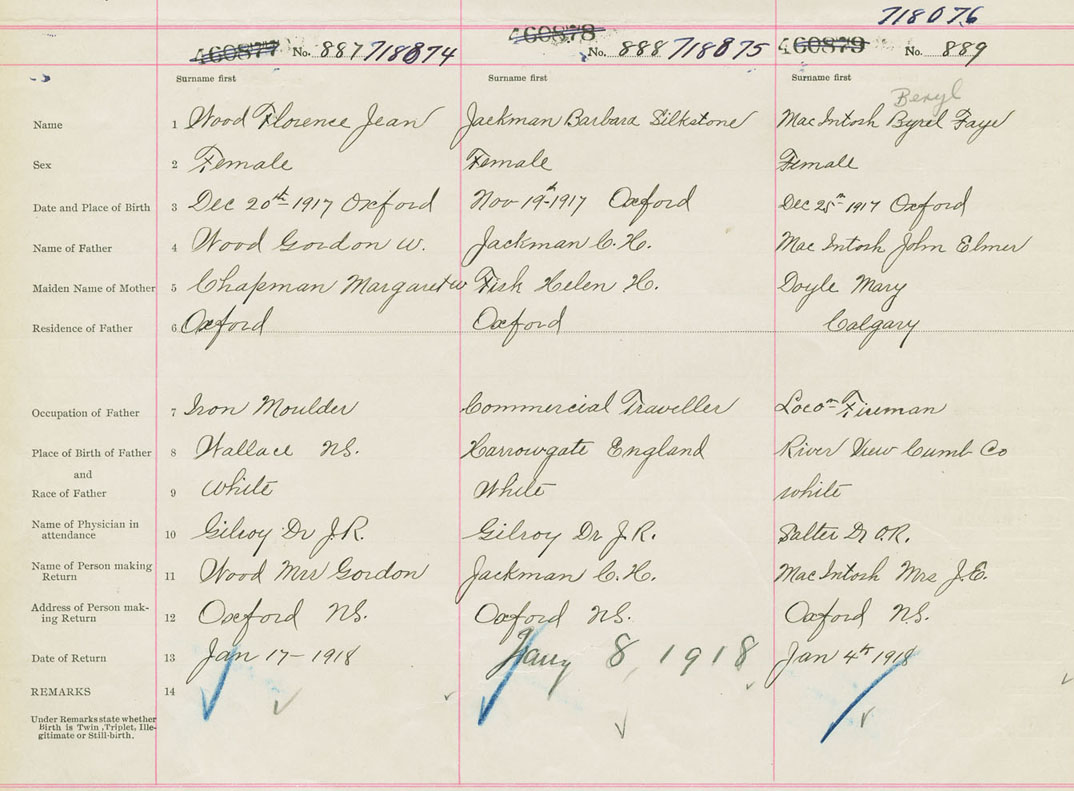 718076
460877 No. 887 718074 460878 No. 888 718075 460879 No. 889
Surname first Surname first Surname first
Beryl
Name 1 Wood Florence Jean Jackman Barbara Silkstone Mac Intosh Byrel Faye
Sex 2 Female Female Female
Date and Place of Birth 3 Dec 20th 1917 Oxford Nov 19th 1917 Oxford Dec 25th 1917 Oxford
Name of Father 4 Wood Gordon W. Jackman C. H. Mac Intosh John Elmer
Maiden Name of Mother 5 Chapman Margaret W Fisk Helen H. Doyle Mary
Residence of Father 6 Oxford Oxford Calgary
Occupation of Father 7 Iron Moulder Commercial Traveller Locom Fireman
Place of Birth of Father 8 Wallace NS. Harrowgate England River View Cumb Co
and
Race of Father 9 White White White
Name of Physician in
attendance 10 Gilroy Dr J.R. Gilroy Dr J.R. Salter Dr O.R.
Name of Person making
Return 11 Wood Mrs Gordon Jackman C. H. Mac Intosh Mrs J.E.
Address of Person mak-
ing Return 12 Oxford NS. Oxford NS. Oxford NS.
Date of Return 13 Jan 17 - 1918 Jany 8, 1918 Jan 4th 1918
REMARKS 14
Under Remarks state whether
Birth is Twin, Triplet, Ille-
gitimate or Still-birth.